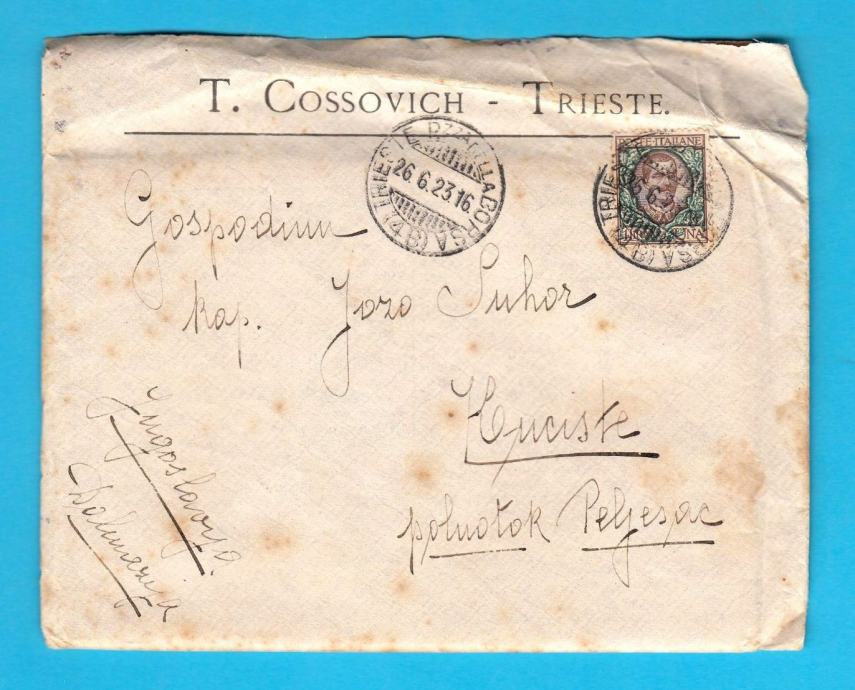 T. COSSOVICH - TRIESTE.
TRIESTE P.ZZA DELLA BORSA (8)
26.6.23 16
POSTE ITALIANE
LIRE UNA
Gospodinu
kap. Jozo Suhor
Kuciste
poluotok Peljesac
Jugoslavija.
Dalmazija